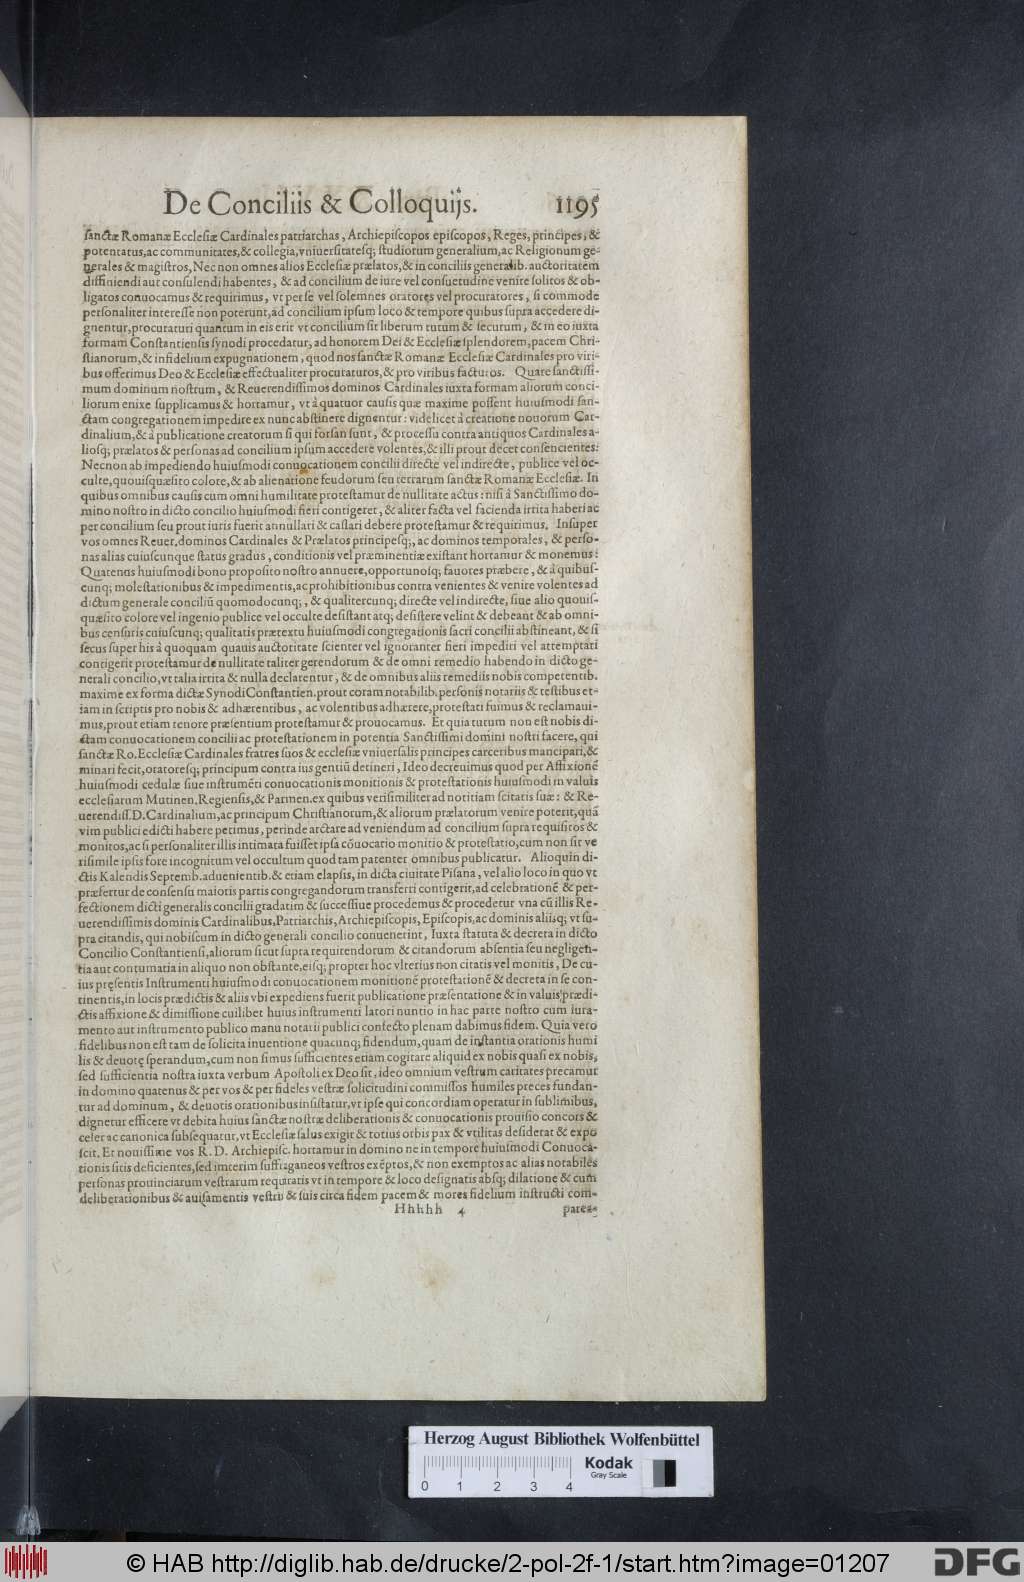 De Conciliis & Colloquijs. 1195
sanctæ Romanæ Ecclesiæ Cardinales patriarchas, Archiepiscopos episcopos, Reges, principes, &
potentatus, ac communitates, & collegia, vniuersitatesq; studiorum generalium, ac Religionum ge-
nerales & magistros, Nec non omnes alios Ecclesiæ prælatos, & in conciliis generalib. auctoritatem
diffiniendi aut consulendi habentes, & ad concilium de iure vel consuetudine venire solitos & ob-
ligatos conuocamus & requirimus, vt per se vel solemnes oratores vel procuratores, si commode
personaliter interesse non poterunt, ad concilium ipsum loco & tempore quibus supra accedere di-
gnentur, procuraturi quantum in eis erit vt concilium sit liberum tutum & securum, & in eo iuxta
formam Constantiensis synodi procedatur, ad honorem Dei & Ecclesiæ splendorem, pacem Chri-
stianorum, & infidelium expugnationem, quod nos sanctæ Romanæ Ecclesiæ Cardinales pro viri-
bus offerimus Deo & Ecclesiæ effectualiter procuraturos, & pro viribus facturos. Quare sanctissi-
mum dominum nostrum, & Reuerendissimos dominos Cardinales iuxta formam aliorum conci-
liorum enixe supplicamus & hortamur, vt à quatuor causis quæ maxime possent huiusmodi san-
ctam congregationem impedire ex nunc abstinere dignentur: videlicet à creatione nouorum Car-
dinalium, & à publicatione creatorum si qui forsan sunt, & processu contra antiquos Cardinales a-
liosq; prælatos & personas ad concilium ipsum accedere volentes, & illi prout decet consencientes:
Necnon ab impediendo huiusmodi conuocationem concilii directe vel indirecte, publice vel oc-
culte, quouisquæsito colore, & ab alienatione feudorum seu terrarum sanctæ Romanæ Ecclesiæ. In
quibus omnibus causis cum omni humilitate protestamur de nullitate actus: nisi à Sanctissimo do-
mino nostro in dicto concilio huiusmodi fieri contigeret, & aliter facta vel facienda irtita haberi ac
per concilium seu prout iuris fuerit annullari & cassari debere protestamur & requirimus. Insuper
vos omnes Reuer. dominos Cardinales & Prælatos principesq;, ac dominos temporales, & perso-
nas alias cuiuscunque status gradus, conditionis vel præminentiæ existant hortamur & monemus:
Quatenus huiusmodi bono proposito nostro annuere, opportunosq; fauores præbere, & à quibus-
cunq; molestationibus & impedimentis, ac prohibitionibus contra venientes & venire volentes ad
dictum generale conciliū quomodocunq;, & qualitercunq; directe vel indirecte, siue alio quouis-
quæsito colore vel ingenio publice vel occulte desistant atq; desistere velint & debeant & ab omni-
bus censuris cuiuscunq; qualitatis prætextu huiusmodi congregationis sacri concilii abstineant, & si
secus super his à quoquam quauis auctoritate scienter vel ignoranter fieri impediri vel attemptari
contigerit protestamur de nullitate taliter gerendorum & de omni remedio habendo in dicto ge-
nerali concilio, vt talia irtita & nulla declarentur, & de omnibus aliis remediis nobis competentib.
maxime ex forma dictæ Synodi Constantien. prout coram notabilib. personis notariis & testibus et-
iam in scriptis pro nobis & adhærentibus, ac volentibus adhærere, protestati fuimus & reclamaui-
mus, prout etiam tenore præsentium protestamur & prouocamus. Et quia tutum non est nobis di-
ctam conuocationem concilii ac protestationem in potentia Sanctissimi domini nostri facere, qui
sanctæ Ro. Ecclesiæ Cardinales fratres suos & ecclesiæ vniuersalis principes carceribus mancipari, &
minari fecit, oratoresq; principum contra ius gentiū detineri, Ideo decreuimus quod per Affixionē
huiusmodi cedulæ siue instrumēti conuocationis monitionis & protestationis huiusmodi in valuis
ecclesiarum Mutinen. Regiensis, & Parmen. ex quibus verisimiliter ad notitiam scitatis suæ: & Re-
uerendiss. D. Cardinalium, ac principum Christianorum, & aliorum prælatorum venire poterit, quā
vim publici edicti habere petimus, perinde arctare ad veniendum ad concilium supra requisitos &
monitos, ac si personaliter illis intimata fuisset ipsa cōuocatio monitio & protestatio, cum non sit ve
risimile ipsis fore incognitum vel occultum quod tam patenter omnibus publicatur. Alioquin di-
ctis Kalendis Septemb. aduenientib. & etiam elapsis, in dicta ciuitate Pisana, vel alio loco in quo vt
præfertur de consensu maioris partis congregandorum transferri contigerit, ad celebrationē & per-
fectionem dicti generalis concilii gradatim & successiue procedemus & procedetur vna cū illis Re-
uerendissimis dominis Cardinalibus, Patriarchis, Archiepiscopis, Episcopis, ac dominis aliisq; vt su-
pra citandis, qui nobiscum in dicto generali concilio conuenerint, Iuxta statuta & decreta in dicto
Concilio Constantiensi, aliorum sicut supra requirendorum & citandorum absentia seu negligen-
tia aut contumatia in aliquo non obstante, eisq; propter hoc vlterius non citatis vel monitis, De cu-
ius pręsentis Instrumenti huiusmodi conuocationem monitionē protestationē & decreta in se con-
tinentis, in locis prædictis & aliis vbi expediens fuerit publicatione præsentatione & in valuis prædi-
ctis affixione & dimissione cuilibet huius instrumenti latori nuntio in hac parte nostro cum iura-
mento aut instrumento publico manu notarii publici confecto plenam dabimus fidem. Quia vero
fidelibus non est tam de solicita inuentione quacunq; fidendum, quam de instantia orationis humi
lis & deuotę sperandum, cum non simus sufficientes etiam cogitare aliquid ex nobis quasi ex nobis,
sed sufficientia nostra iuxta verbum Apostoli ex Deo sit, ideo omnium vestrum caritates precamur
in domino quatenus & per vos & per fideles vestræ solicitudini commissos humiles preces fundan-
tur ad dominum, & deuotis orationibus insistatur, vt ipse qui concordiam operatur in sublimibus,
dignetur efficere vt debita huius sanctæ nostræ deliberationis & conuocationis prouisio concors &
celer ac canonica subsequatur, vt Ecclesiæ salus exigit & totius orbis pax & vtilitas desiderat & expo
scit. Et nouissime vos R. D. Archiepisc. hortamur in domino ne in tempore huiusmodi Conuoca-
tionis sitis deficientes, sed interim suffraganeos vestros exēptos, & non exemptos ac alias notabiles
personas prouinciarum vestrarum requiratis vt in tempore & loco designatis absq; dilatione & cum
deliberationibus & auisamentis vestris & suis circa fidem pacem & mores fidelium instructi com-
Hhhhh 4 parea-
Herzog August Bibliothek Wolfenbüttel
0 1 2 3 4
Kodak
Gray Scale
© HAB http://diglib.hab.de/drucke/2-pol-2f-1/start.htm?image=01207
DFG